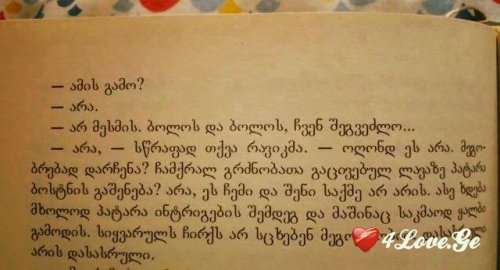 — ამის გამო?
— არა.
— არ მესმის. ბოლოს და ბოლოს, ჩვენ შეგვეძლო...
— არა, — სწრაფად თქვა რავიკმა. — ოღონდ ეს არა. მეგო-
ბრებად დარჩენა? ჩამქრალ გრძნობათა გაცივებულ ლავაზე პატარა
ბოსტნის გაშენება? არა, ეს ჩემი და შენი საქმე არ არის. ასე ხდება
მხოლოდ პატარა ინტრიგების შემდეგ და მაშინაც საკმაოდ ყალბი
გამოდის. სიყვარულს ჩირქს არ სცხებენ
არის დასასრული.
4Love.Ge